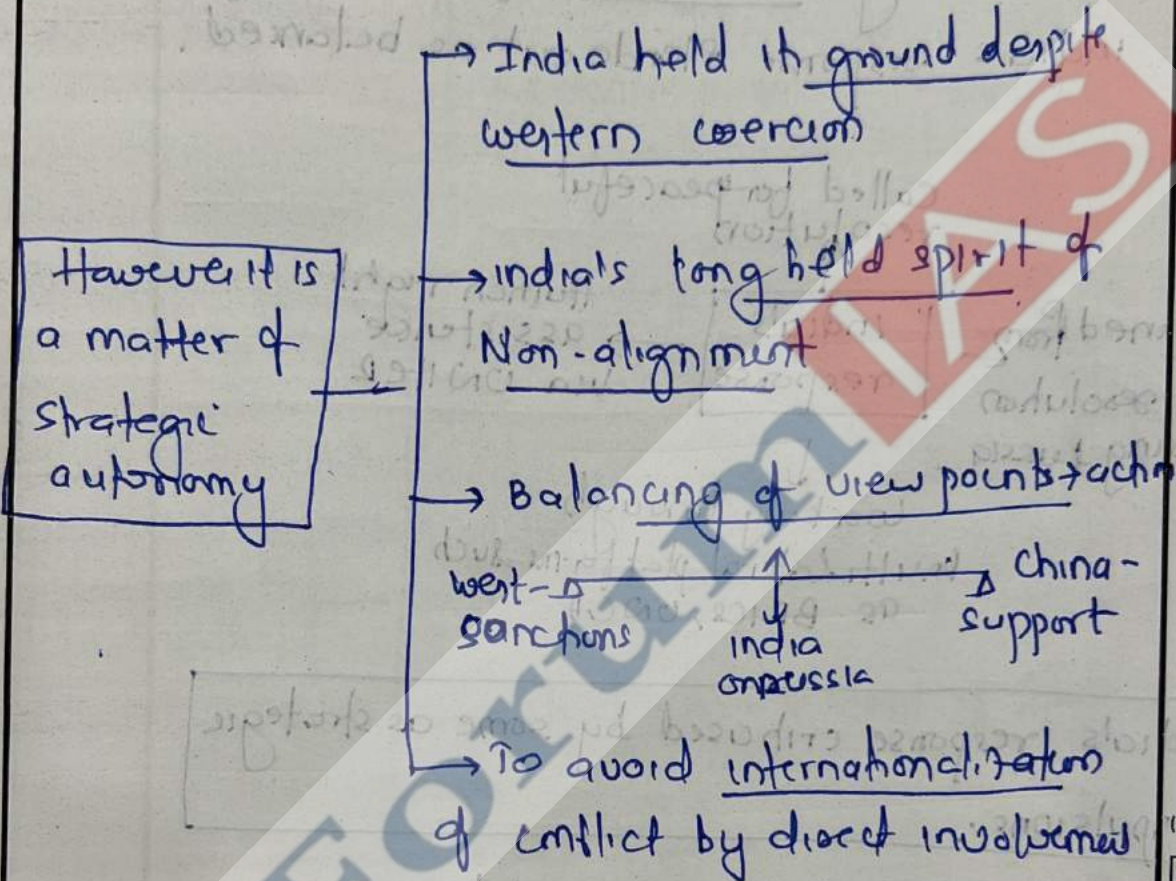 However it is
a matter of
strategic
autonomy
→ India held its ground despite
western coercion
→ india's long held spirit of
Non-alignment
→ Balancing of view points +
west-
sanctions
india
on russia
China-
support
→ To avoid internationalization
of conflict by direct involvement
Forum IAS